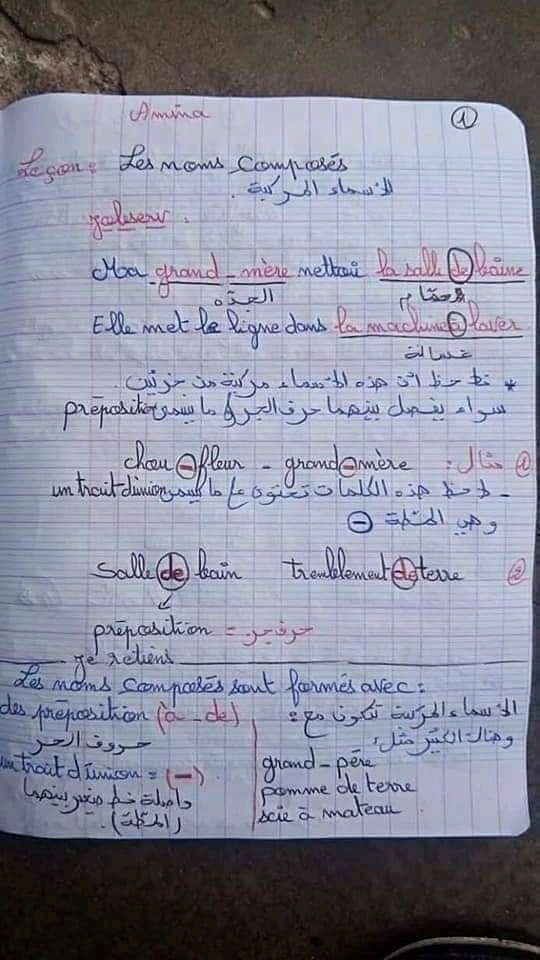 Amina
1
Leçon: Les noms composés
الأسماء المركبة.
J'observe:
Ma grand-mère nettoie la salle de baine
الجدّه الحمّام
Elle met le ligne dans la machine à laver
غسالة
* نلاحظ أنّ هذه الأسماء مركبة من جزئين.
سواء يفصل بينهما حرف الجر أو ما يسمى préposition
① مثال: chou-fleur - grand-mère
- نلاحظ هذه الكلمات تحتوي على ما يسمى un trait d'union
وهي المطّة ⊖
② salle de bain tremblement de terre
préposition = حرف جر.
Je retiens
Les noms composés sont formés avec:
الأسماء المركبة تتكون مع:
des préposition (à - de)
حروف الجر
un trait d'union = (-)
واصلة خط صغير بينهما
(المطّة).
وهناك الكثير مثل:
grand-père
pomme de terre
scie à mateau